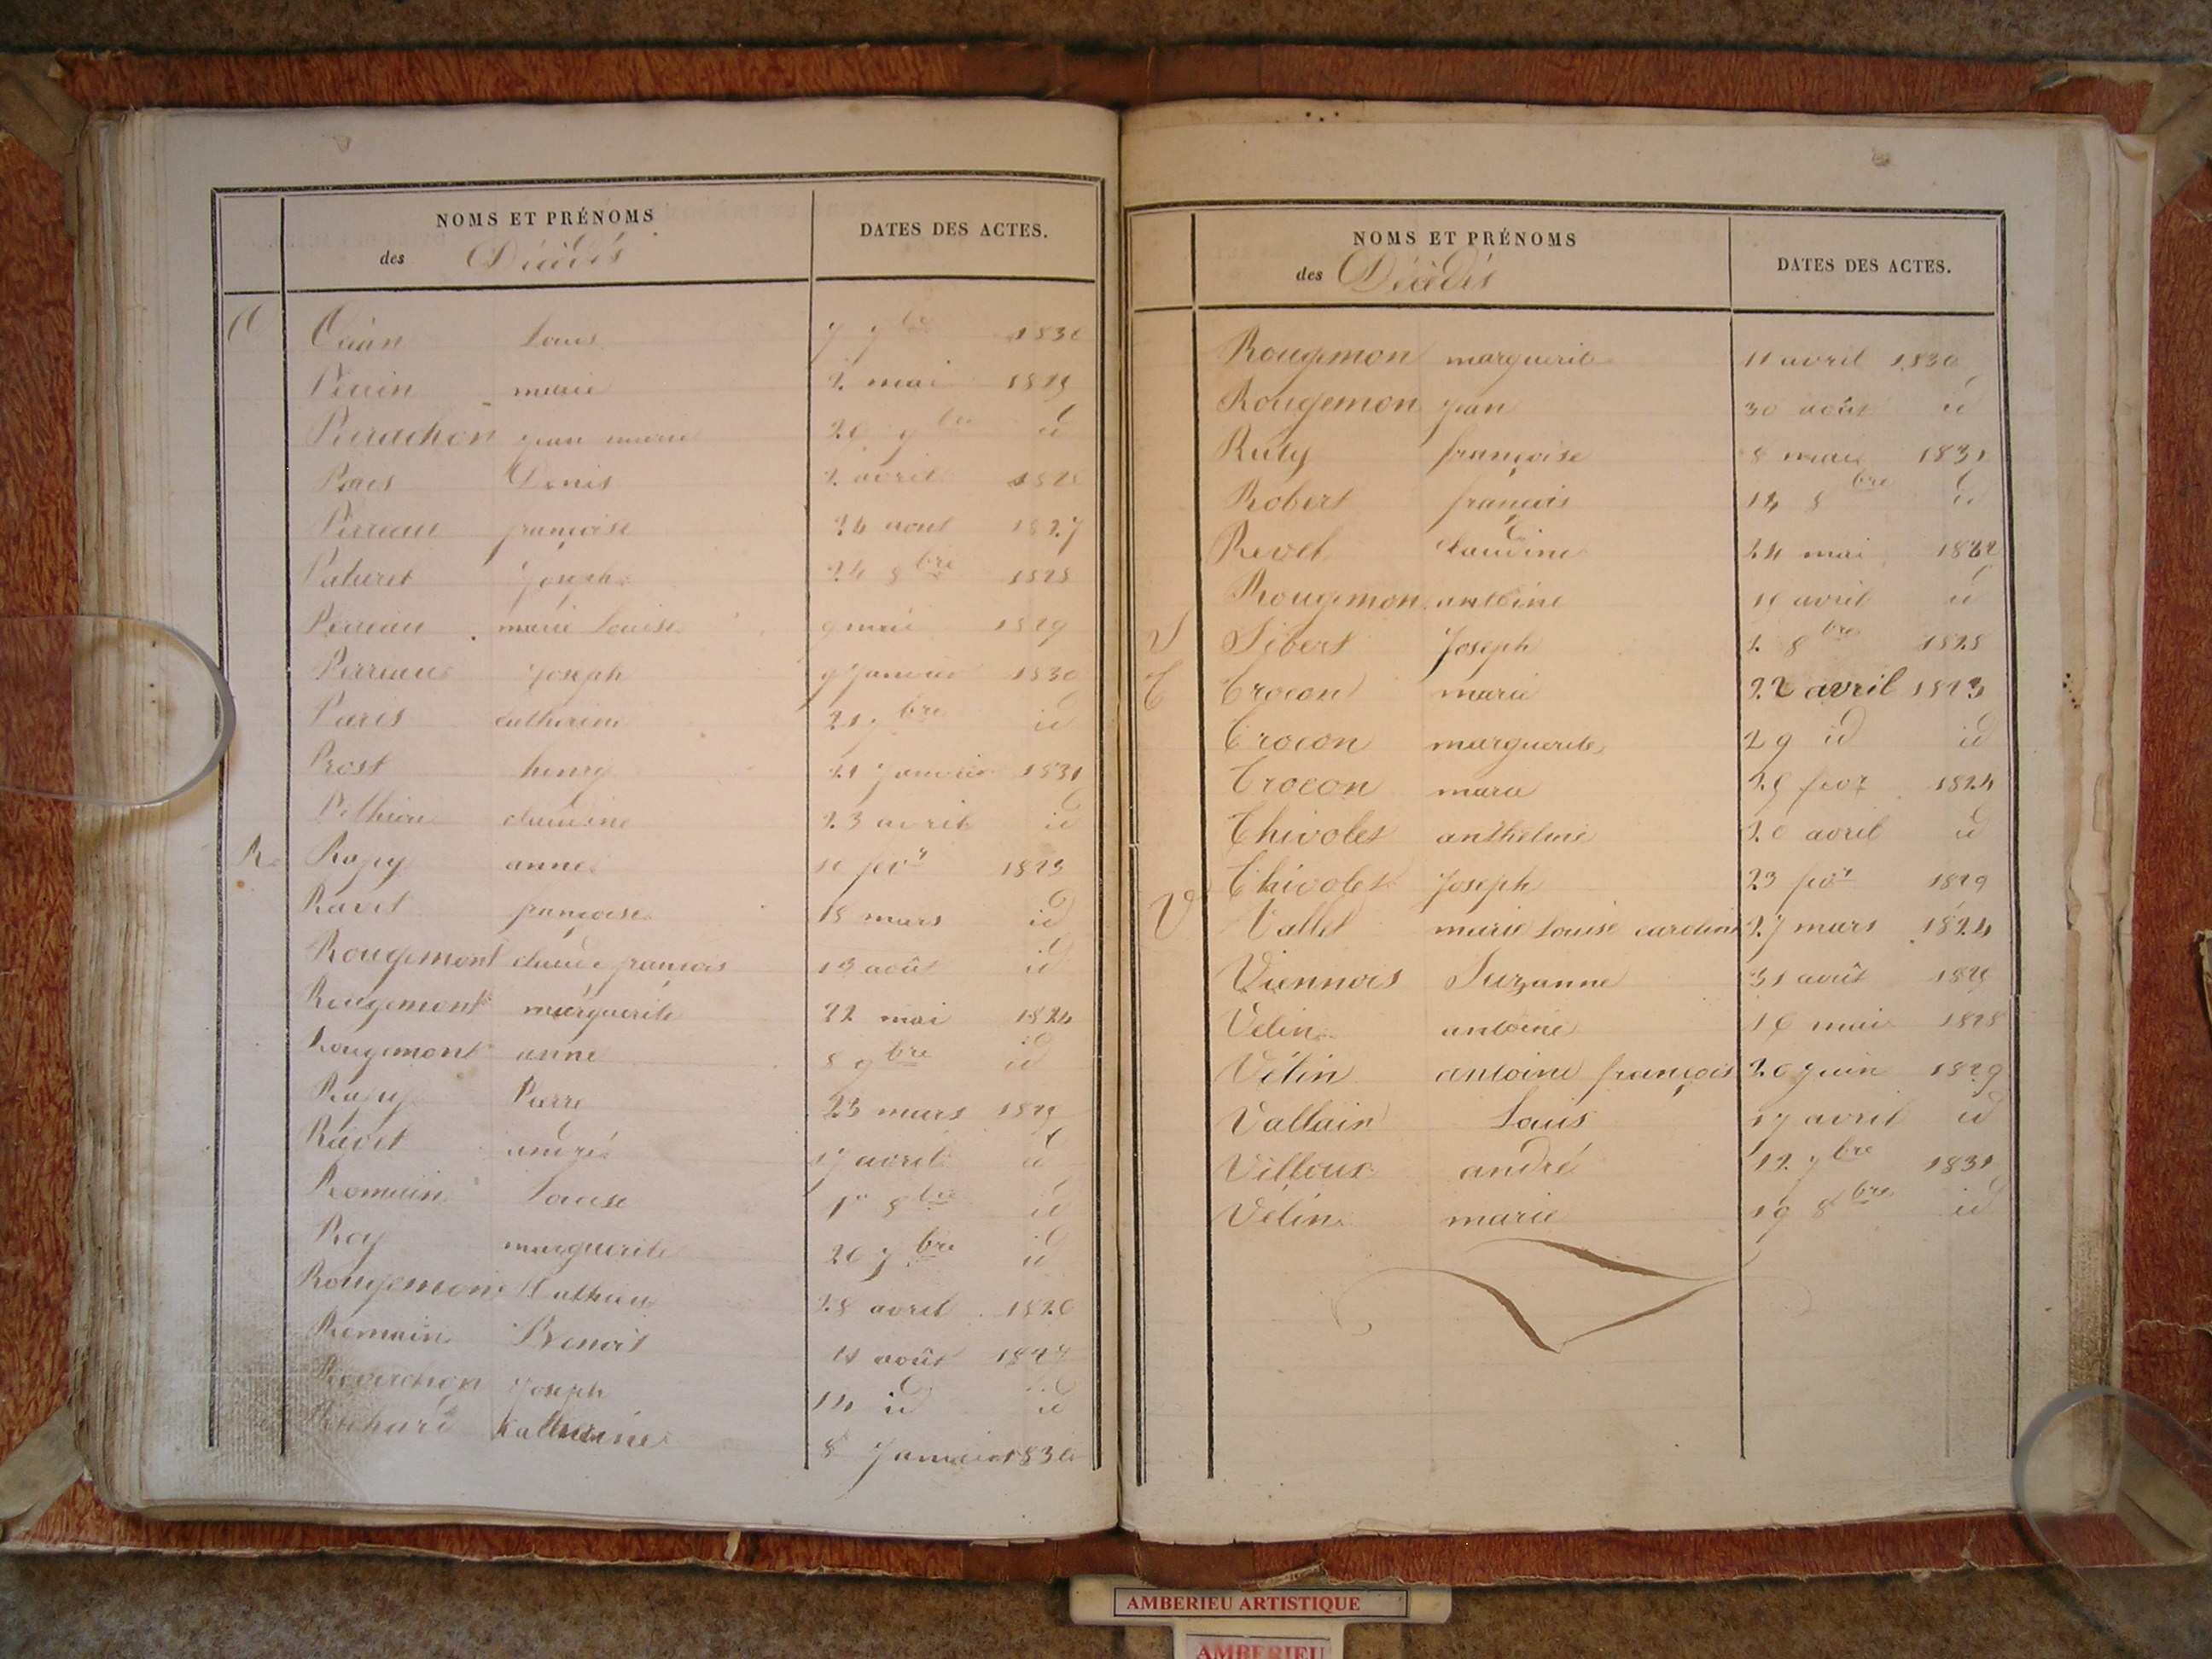 NOMS ET PRÉNOMS
des Décédés
DATES DES ACTES.
Louis 7 9bre
marie 2 mai
Perrachon jean marie id
Paris Denis 2 avril
françoise 24 aout 1827
Paturet Joseph 24 8bre 1828
Perreau marie Louise 9 mai 1829
Perreau Joseph 9 Janvier 1830
Paris Catherine bre id
Prost henry 21 Janvier 1831
claudine 23 avril id
R. Rapy anne 10 fevr 1823
Ravet françoise 18 mars id
Rougemont claude françois 13 août id
Rougemont marguerite 22 mai 1824
Rougemont anne 8 9bre id
Rapy Pierre 23 mars
Ravet andré 17 avril id
Romain Louise 1er 8bre id
Roy marguerite 20 7bre id
Rougemont Mathieu 28 avril 1826
Romain Benoit août
Joseph 14 id id
Richard Katherine 8 Janvier 1830
NOMS ET PRÉNOMS
des Décédés
DATES DES ACTES.
Rougemon marguerite 11 avril 1830
Rougemon jean 30 août id
Ruty françoise 8 mai 1831
Robert françois 14 8bre id
Revel claudine 24 mai
Rougemon antoine avril id
S Sibert Joseph 2 8bre 1828
T Trocon marie 22 avril 1823
Trocon marguerite 29 id id
Trocon marie fevr 1824
Thivolet anthelme 20 avril id
Thivolet Joseph 23 fevr 1829
V Vallet marie Louise caroline 27 mars 1824
Viennois Suzanne 31 août
Velin antoine 16 mai 1828
Vélin antoine françois 20 juin 1829
Vallain Louis 17 avril id
Villoux andré 12 7bre 1831
Vélin marie 19 8bre id
AMBERIEU ARTISTIQUE
AMBERIEU